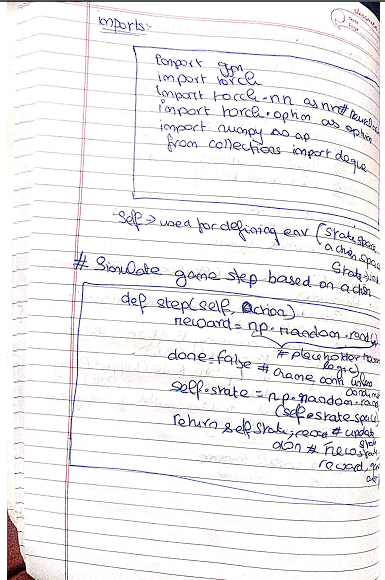 imports:-
import gym
import torch
import torch.nn as nn #
import torch.optim as optim
import numpy as np
from collections import deque
Self -> used for defining env (state space
action space
State
# Simulate game step based on action
def step(self, action)
reward = np.random.rand()
# placeholder
logic)
done = false # Game cont unless
self.state = np.random.rand
(self.state space)
return self.state, # update
state
don # new state,
reward,